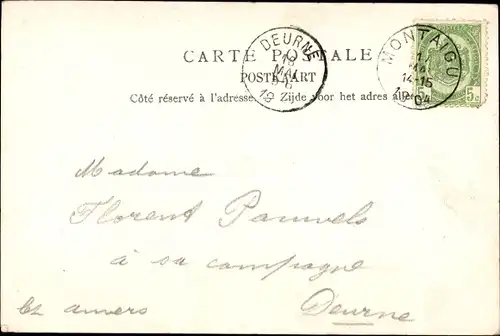 CARTE POSTALE
POSTKAART
Côté réservé à l'adresse. Zijde voor het adres alleen
DEURNE
MAI
19
MONTAIGU
14-15
1904
5c 5c
Madame
Florent Pauwels
à sa campagne
Lez anvers Deurne